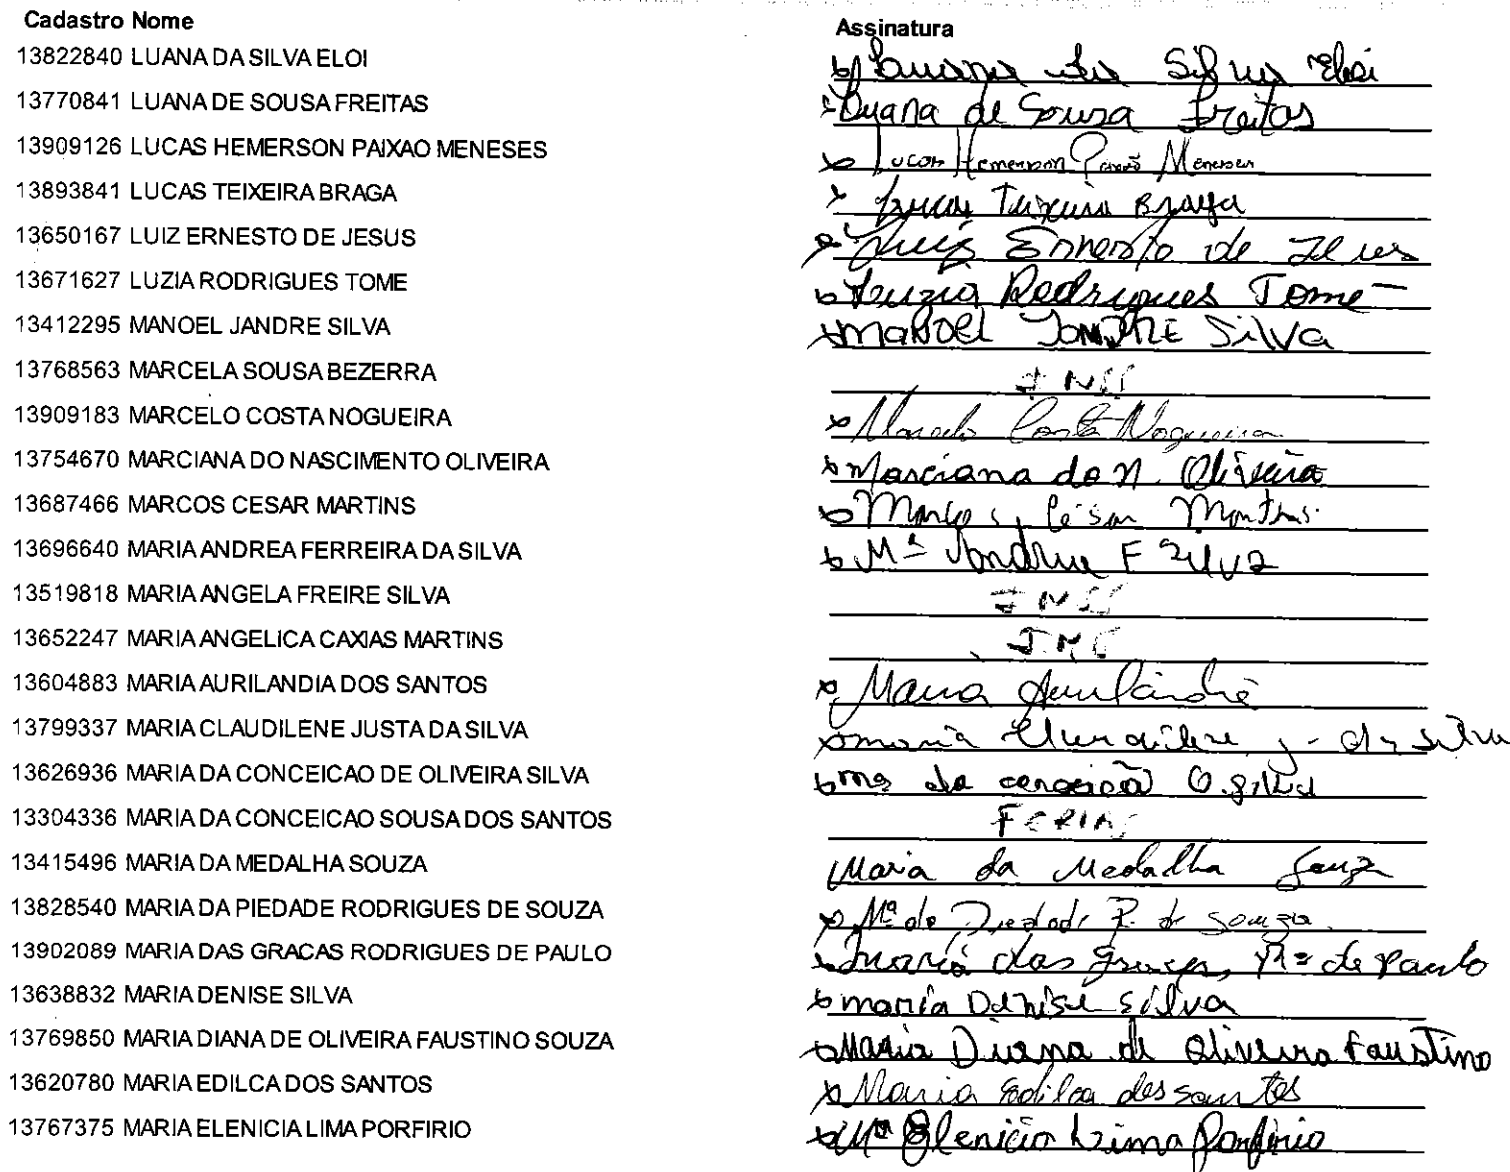 Cadastro Nome Assinatura
13822840 LUANA DA SILVA ELOI Luana da Silva Eloi
13770841 LUANA DE SOUSA FREITAS Luana de Sousa Freitas
13909126 LUCAS HEMERSON PAIXAO MENESES Lucas Hemerson Paixão Meneses
13893841 LUCAS TEIXEIRA BRAGA Lucas Teixeira Braga
13650167 LUIZ ERNESTO DE JESUS Luiz Ernesto de Jesus
13671627 LUZIA RODRIGUES TOME Luzia Rodrigues Tome
13412295 MANOEL JANDRE SILVA MANOEL JANDRE Silva
13768563 MARCELA SOUSA BEZERRA INSS
13909183 MARCELO COSTA NOGUEIRA Marcelo Costa Nogueira
13754670 MARCIANA DO NASCIMENTO OLIVEIRA Marciana do N. Oliveira
13687466 MARCOS CESAR MARTINS Marcos César Martins
13696640 MARIA ANDREA FERREIRA DA SILVA Mª Andrea F Silva
13519818 MARIA ANGELA FREIRE SILVA INSS
13652247 MARIA ANGELICA CAXIAS MARTINS
13604883 MARIA AURILANDIA DOS SANTOS Maria Aurilandia
13799337 MARIA CLAUDILENE JUSTA DA SILVA maria Claudilene J. da silva
13626936 MARIA DA CONCEICAO DE OLIVEIRA SILVA mª da conceição O. silva
13304336 MARIA DA CONCEICAO SOUSA DOS SANTOS FERIAS
13415496 MARIA DA MEDALHA SOUZA Maria da Medalha Souza
13828540 MARIA DA PIEDADE RODRIGUES DE SOUZA Mª da Piedade R. de Souza
13902089 MARIA DAS GRACAS RODRIGUES DE PAULO Maria das Graças Rª de Paulo
13638832 MARIA DENISE SILVA maria Denise silva
13769850 MARIA DIANA DE OLIVEIRA FAUSTINO SOUZA Maria Diana de Oliveira Faustino
13620780 MARIA EDILCA DOS SANTOS Maria Edilca dos santos
13767375 MARIA ELENICIA LIMA PORFIRIO Mª Elenicia Lima Porfirio